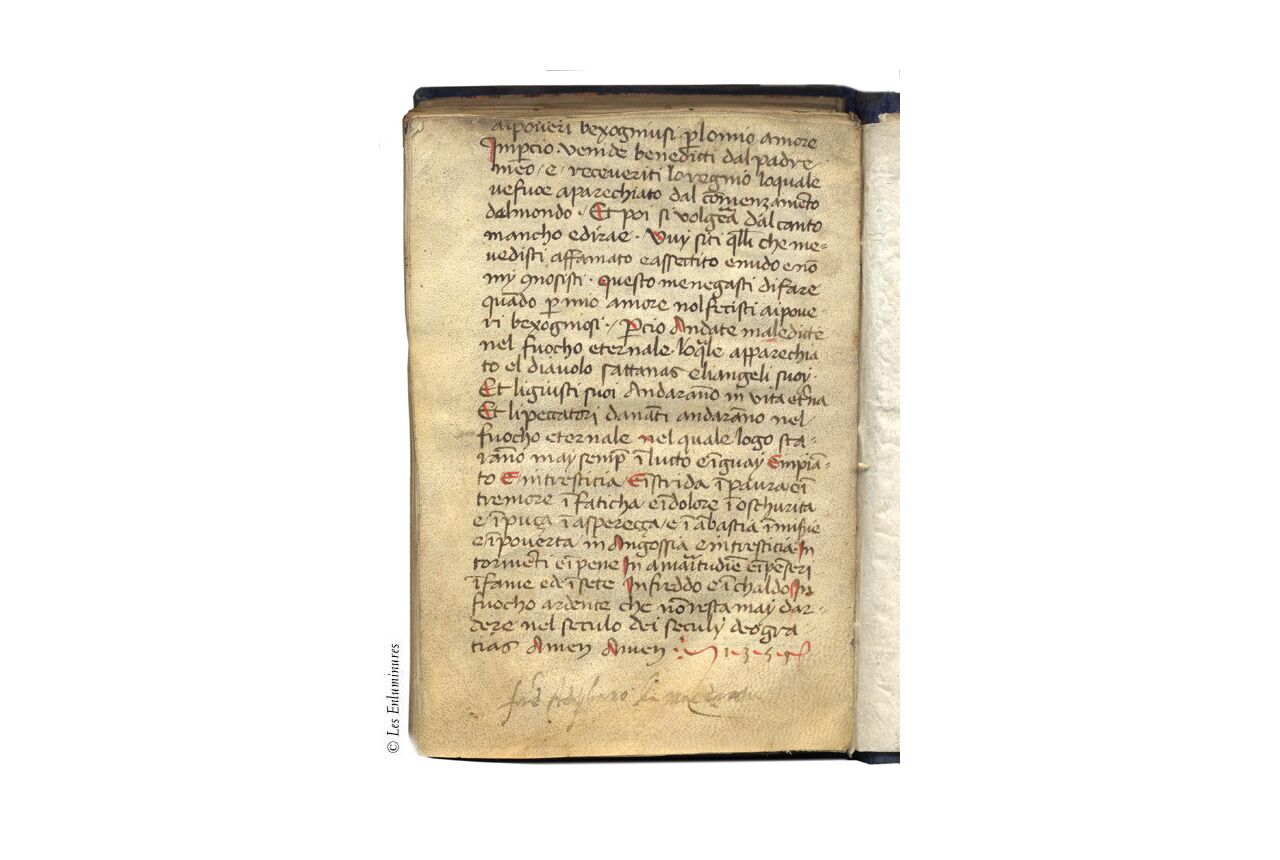 aipoueri bexogniusi p̱lomio amore
Imp̱cio · Venide beneditti dal padre
meo · e · receueriti loregnio loquale
uefuoe aparechiato dal com̄enzam̄eto
dalmondo · Et poi si volgera dalcanto
mancho edirae · Vuy siti q̄lli che me=
uedisti affamato eassettito enudo enō
my ꝯnosisti · questo menegasti difare
quādo p̱ mio amore nolfecisti aipoue=
ri bexogniosi · p̱cio Andate maleditte
nel fuocho eternale loq̄le apparechia
to el diauolo sattanas eliangeli suoy ·
Et ligiusti suoi Andarāno in vita et̄na
Et lipeccatori danāti andarāno nel
fuocho eternale nel quale logo sta=
rāno may semp̱ ī lutto eīguay Empiā=
to E intresticia Eīstrida ī paura eī
tremore ī faticha eīdolore ī oschurita
e īpuça īaspereçça e īābastia īmis̄ie
eīpouerta in Angossia eintresticia In
tormēti eīpene In amaritudīe eīpēseri
īfame ed īsete In freddo e īchaldo In
fuocho ardente che nōresta may dar=
dere nel seculo dei seculy deogra
cias Amen Amen 1·3·5·5
© Les Enluminures